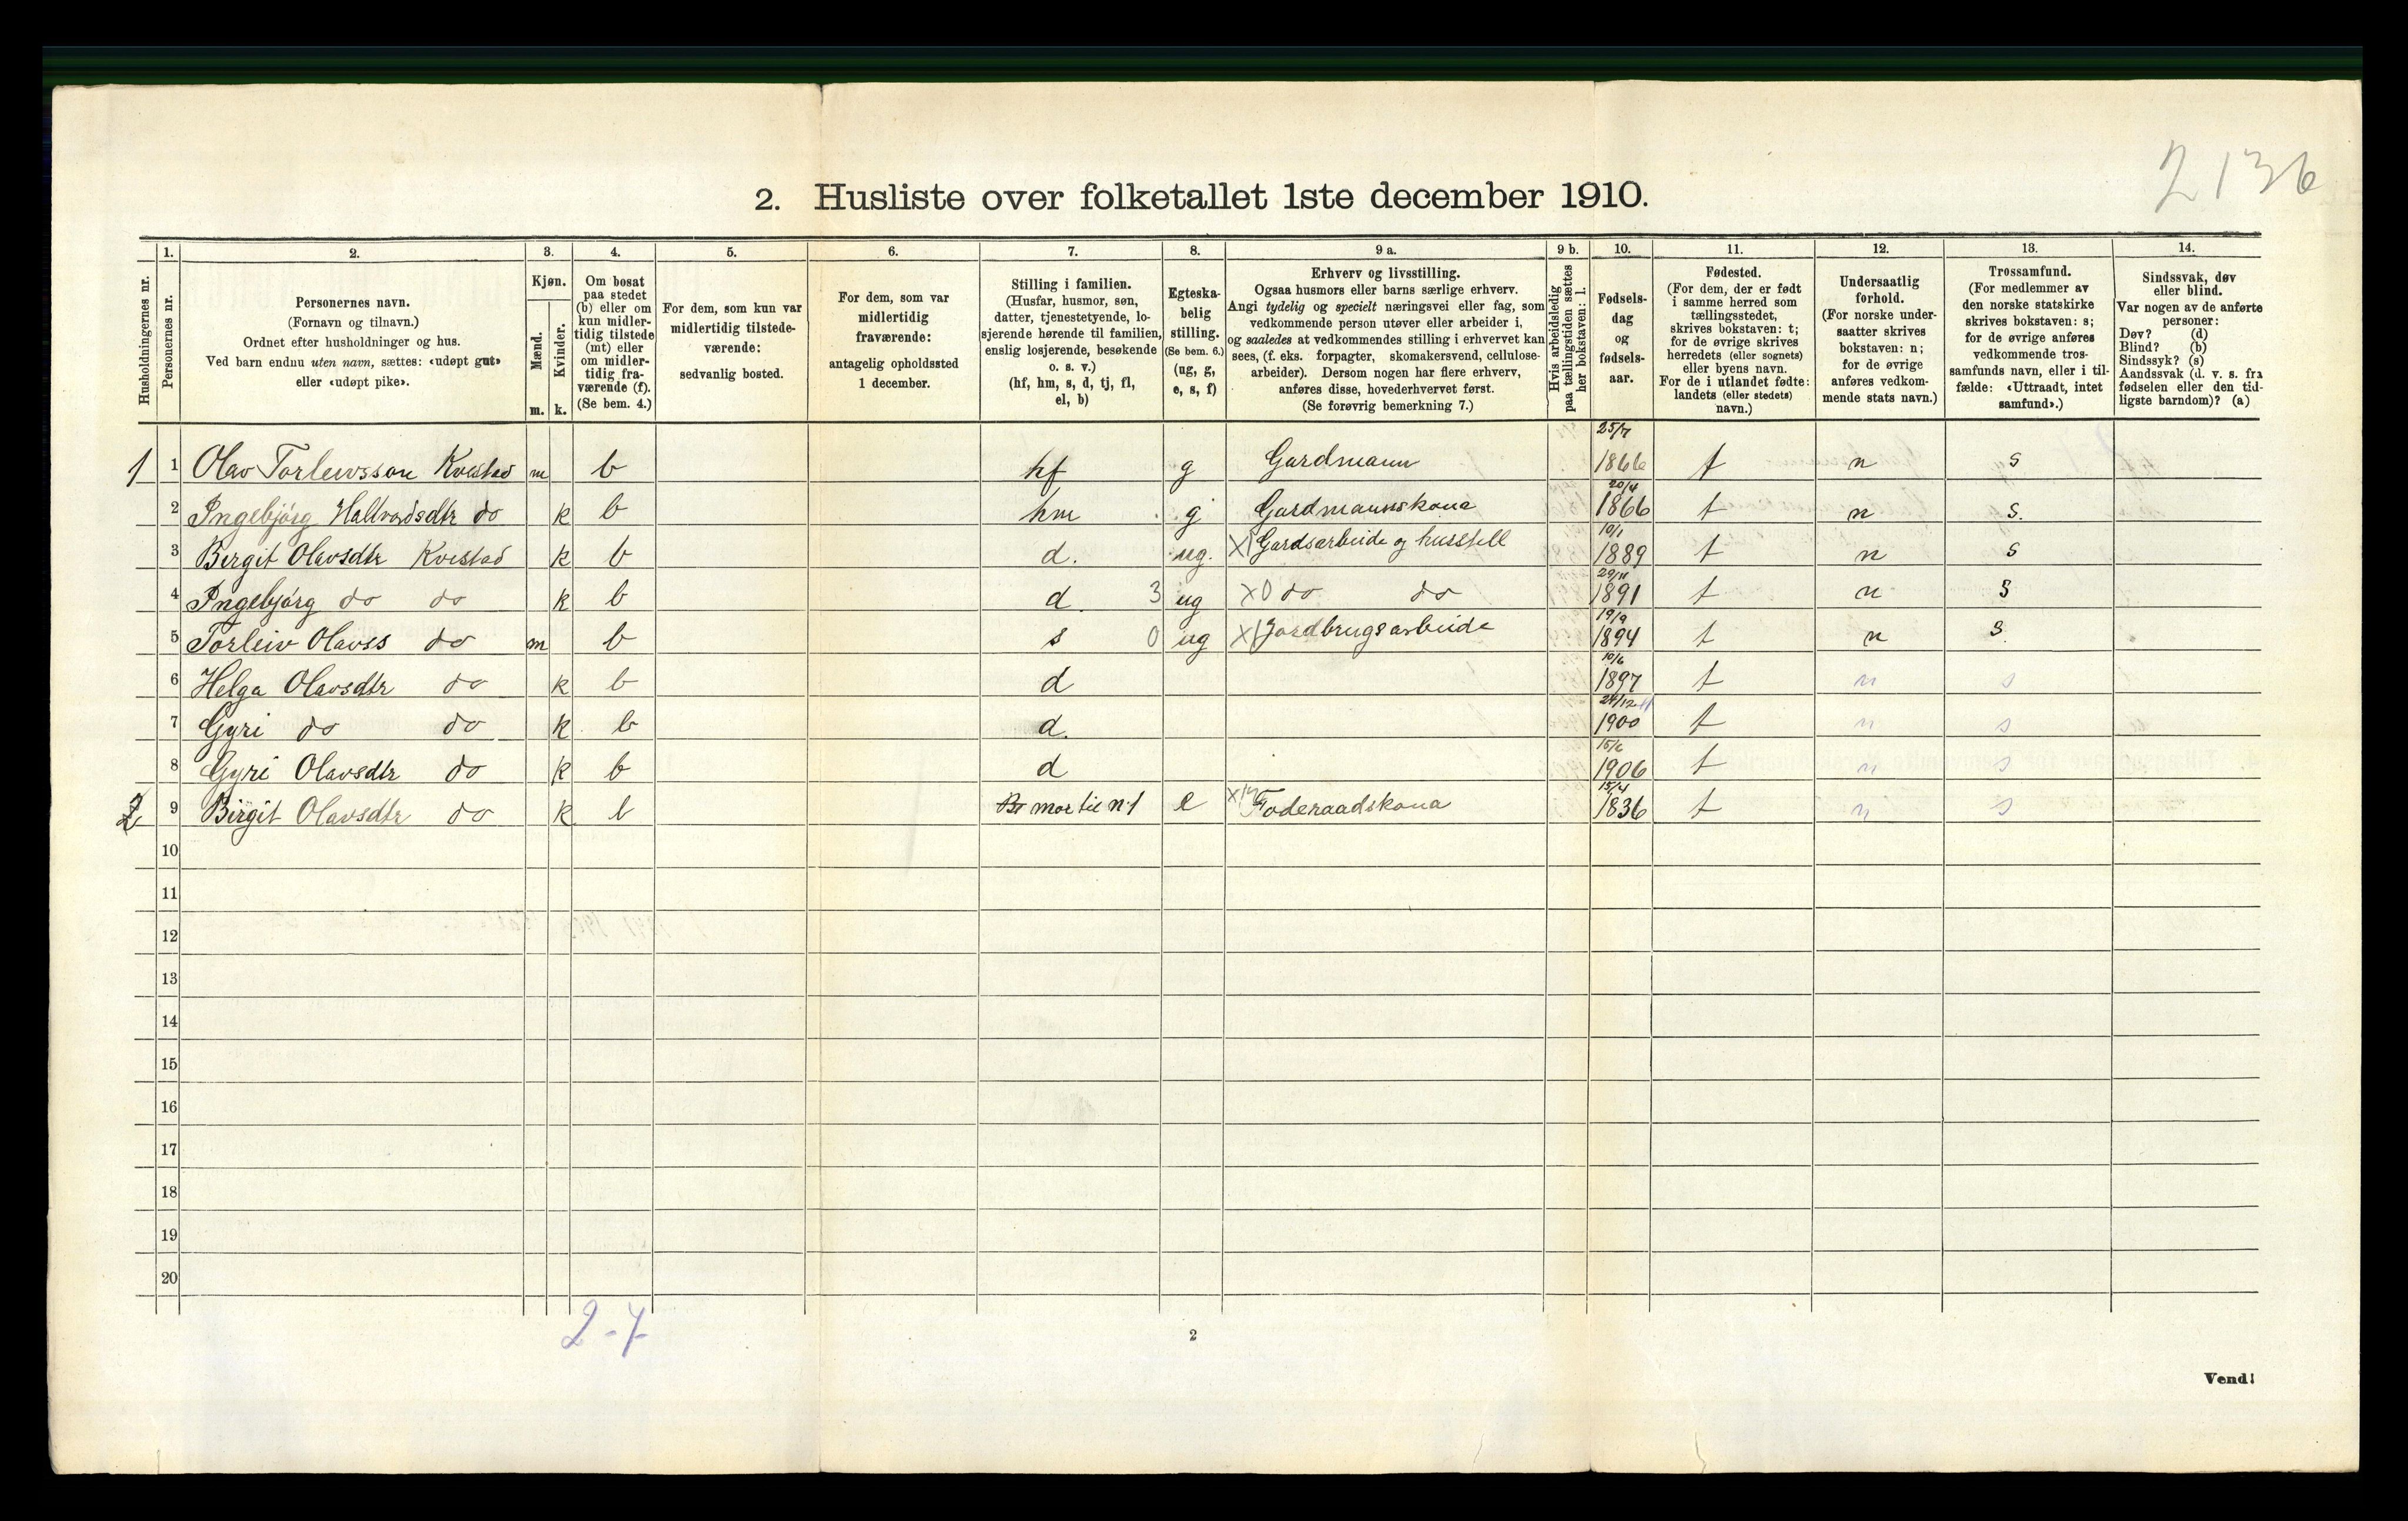 2136
2. Husliste over folketallet 1ste december 1910.
Husholdningernes nr.
1.
Personernes nr.
2.
Personernes navn.
(Fornavn og tilnavn.)
Ordnet efter husholdninger og hus.
Ved barn endnu uten navn, sættes: «udøpt gut»
eller «udøpt pike».
3.
Kjøn.
Mænd.
Kvinder.
m. k.
4.
Om bosat
paa stedet
(b) eller om
kun midler-
tidig tilstede
(mt) eller
om midler-
tidig fra-
værende (f).
(Se bem. 4.)
5.
For dem, som kun var
midlertidig tilstede-
værende:
sedvanlig bosted.
6.
For dem, som var
midlertidig
fraværende:
antagelig opholdssted
1 december.
7.
Stilling i familien.
(Husfar, husmor, søn,
datter, tjenestetyende, lo-
sjerende hørende til familien,
enslig losjerende, besøkende
o. s. v.)
(hf, hm, s, d, tj, fl,
el, b)
8.
Egteska-
belig
stilling.
(Se bem. 6.)
(ug, g,
e, s, f)
9 a.
Erhverv og livsstilling.
Ogsaa husmors eller barns særlige erhverv.
Angi tydelig og specielt næringsvei eller fag, som
vedkommende person utøver eller arbeider i,
og saaledes at vedkommendes stilling i erhvervet kan
sees, (f. eks. forpagter, skomakersvend, cellulose-
arbeider). Dersom nogen har flere erhverv,
anføres disse, hovederhvervet først.
(Se forøvrig bemerkning 7.)
9 b.
Hvis arbeidsledig
paa tællingstiden sættes
her bokstaven: l.
10.
Fødsels-
dag
og
fødsels-
aar.
11.
Fødested.
(For dem, der er født
i samme herred som
tællingsstedet,
skrives bokstaven: t;
for de øvrige skrives
herredets (eller sognets)
eller byens navn.
For de i utlandet fødte:
landets (eller stedets)
navn.)
12.
Undersaatlig
forhold.
(For norske under-
saatter skrives
bokstaven: n;
for de øvrige
anføres vedkom-
mende stats navn.)
13.
Trossamfund.
(For medlemmer av
den norske statskirke
skrives bokstaven: s;
for de øvrige anføres
vedkommende tros-
samfunds navn, eller i til-
fælde: «Uttraadt, intet
samfund».)
14.
Sindssvak, døv
eller blind.
Var nogen av de anførte
personer:
Døv? (d)
Blind? (b)
Sindssyk? (s)
Aandssvak (d. v. s. fra
fødselen eller den tid-
ligste barndom)? (a)
1 1 Olav Torleivsson Kvestad m b hf g Gardmann 25/7 1866 t n s
2 Ingebjørg Hallvadsdtr do k b hm g Gardmannskona 20/4 1866 t n s.
3 Birgit Olavsdtr Kvestad k b d. ug. X1 Gardsarbeide og husstell 10/1 1889 t n s
4 Ingebjørg do do k b d. 3 ug X0 do do 29/11 1891 t n s
5 Torleiv Olavss do m b s 0 ug X1 Jordbrugsarbeide 19/9 1894 t n s.
6 Helga Olavsdtr do k b d 10/6 1897 t n s
7 Gyri do do k b d. 24/12 1900 t n s
8 Gyri Olavsdtr do k b d 15/6 1906 t n s
2 9 Birgit Olavsdtr do k b mor til n. 1 e Foderaadskona 15/4 1836 t n s
10
11
12
13
14
15
16
17
18
19
20
2-7
2
Vend!